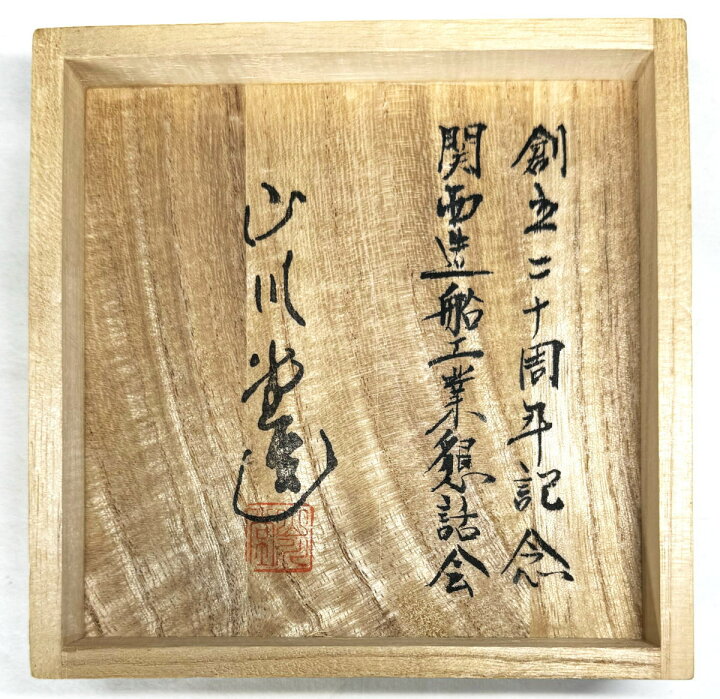 創立二十周年記念
関西造船工業懇話会
山川